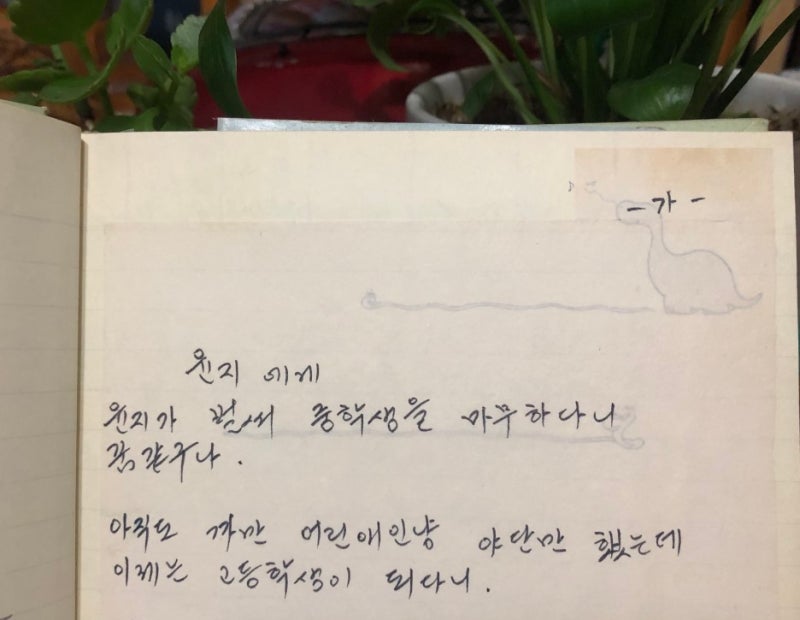 - 가 -
윤지 에게
윤지가 벌써 중학생을 마무하다니
꿈같구나.
아직도 까만 어린애인냥 야단만 했는데
이제는 고등학생이 되다니.